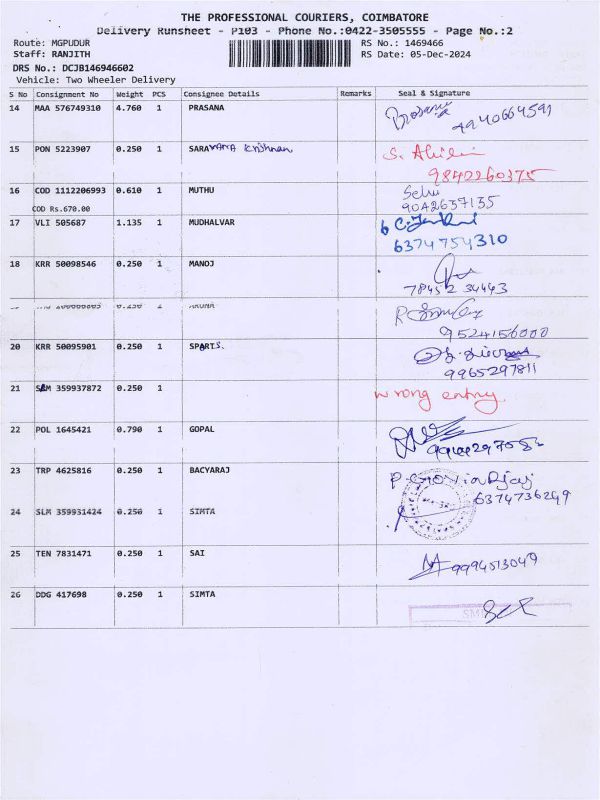 THE PROFESSIONAL COURIERS, COIMBATORE
Delivery Runsheet - P103 - Phone No.:0422-3505555 - Page No.:2
Route: MGPUDUR RS No.: 1469466
Staff: RANJITH RS Date: 05-Dec-2024
DRS No.: DCJB146946602
Vehicle: Two Wheeler Delivery
S No Consignment No Weight PCS Consignee Details Remarks Seal & Signature
14 MAA 576749310 4.760 1 PRASANA Prasana
4940664591
15 PON 5223907 0.250 1 SARAVANA Krishnan S.
9842260375
16 COD 1112206993 0.610 1 MUTHU Selu
9042637135
COD Rs.670.00
17 VLI 505687 1.135 1 MUDHALVAR
6374754310
18 KRR 50098546 0.250 1 MANOJ
78452 34443
9524156000
20 KRR 50095901 0.250 1 SPARTS.
9965297811
21 SLM 359937872 0.250 1 wrong entry.
22 POL 1645421 0.790 1 GOPAL
23 TRP 4625816 0.250 1 BACYARAJ
6374736249
24 SLM 359931424 0.250 1 SIMTA
25 TEN 7831471 0.250 1 SAI 9994513049
26 DDG 417698 0.250 1 SIMTA